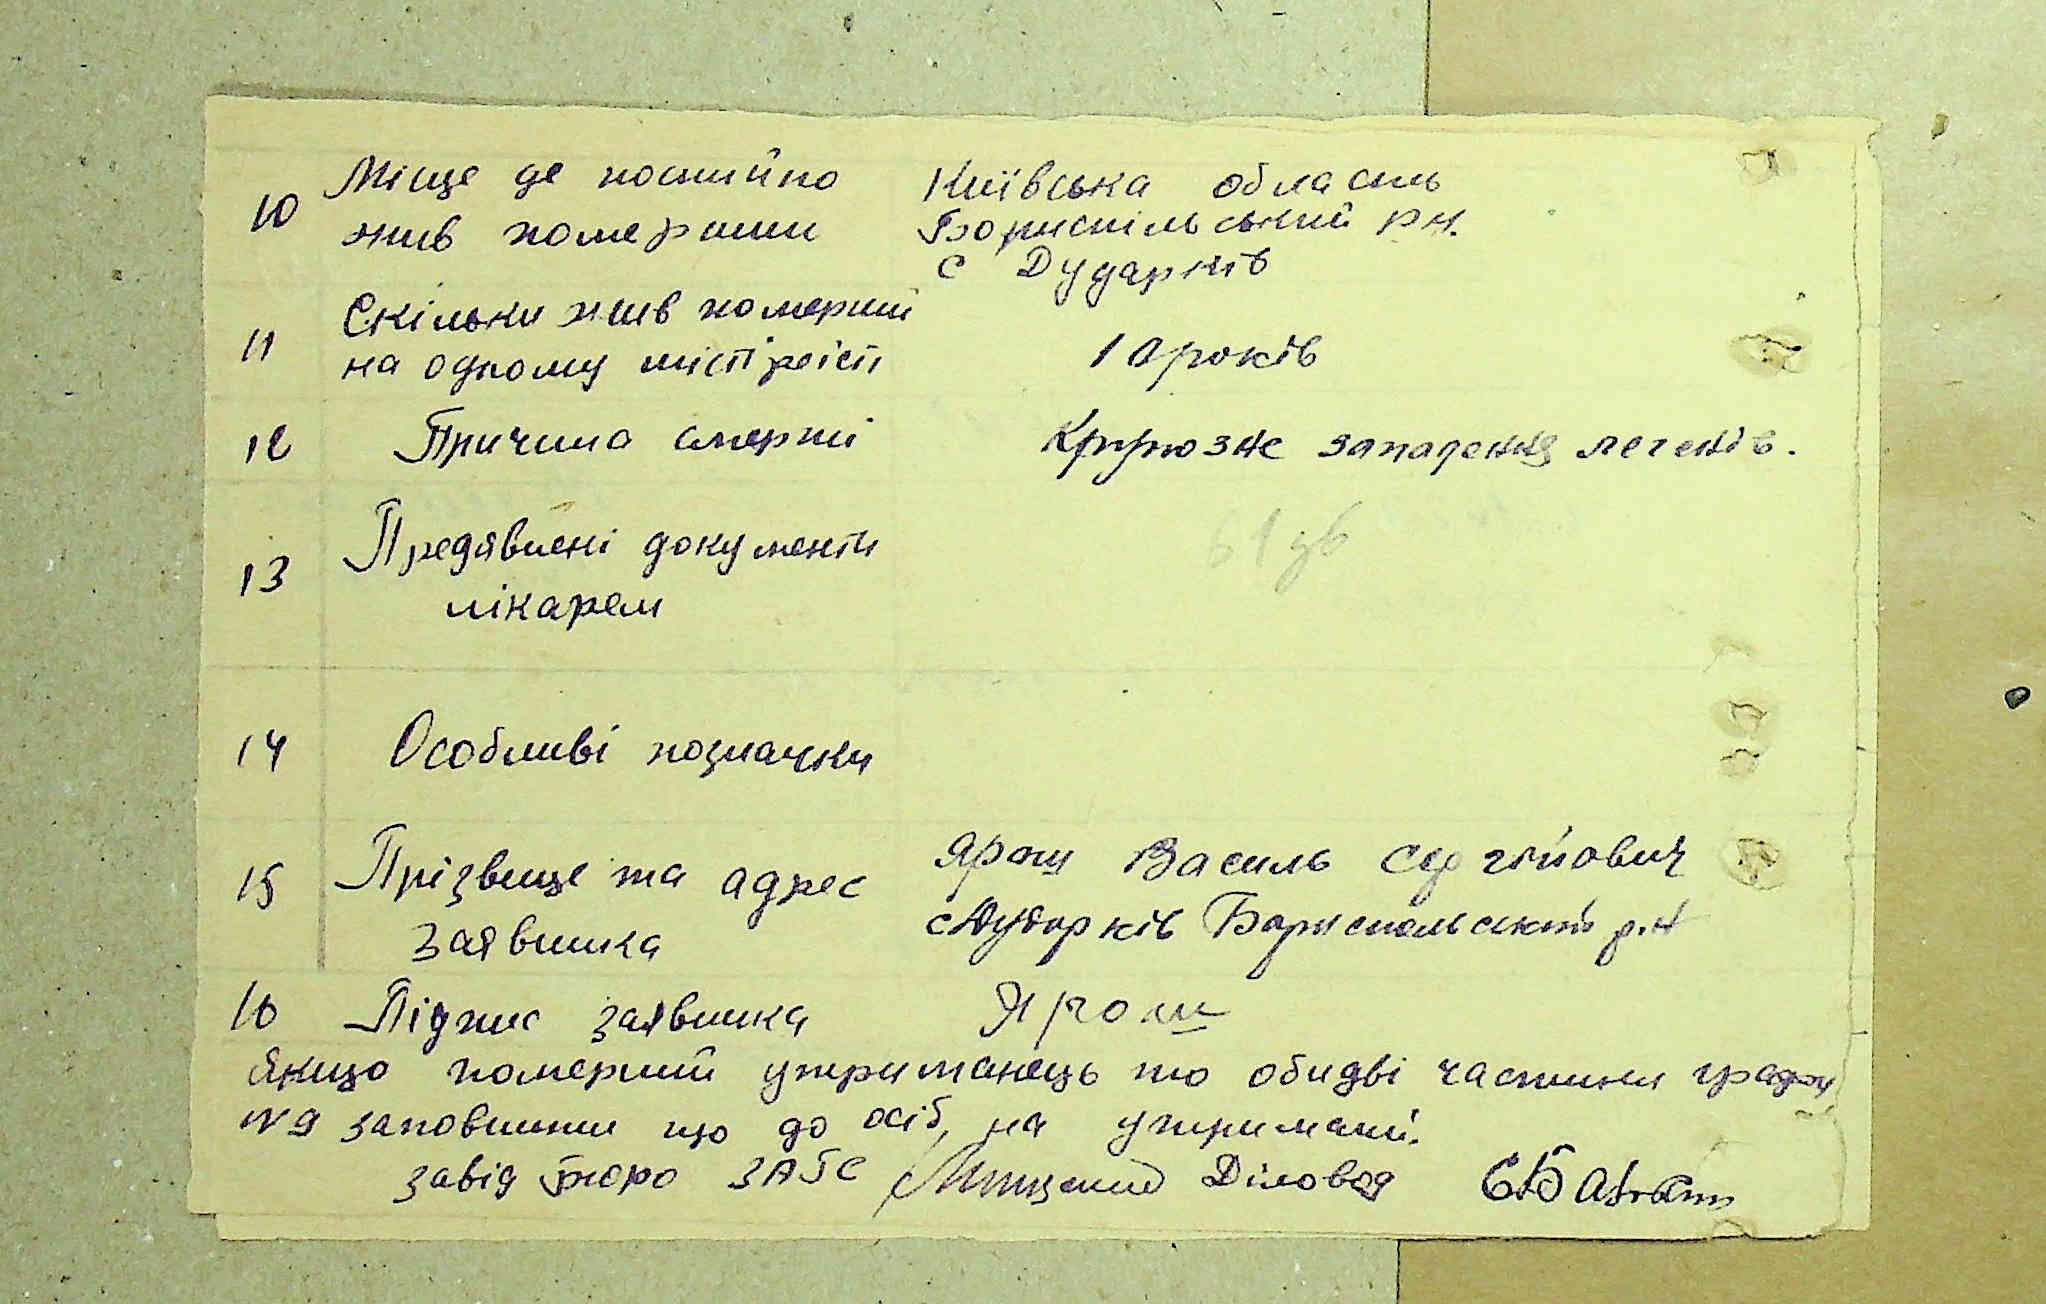 10 Місце де постійно Київська область
жив померший Бориспільський рн.
с Дударків
11 Скільки жив померший
на одному місті 10 років
12 Причина смерті Крупозне запалення легенів.
13 Предявлені документи
лікарем
14 Особливі позначки
15 Прізвище та адрес Ярош Василь Сергійович
заявника с Дударків Бориспольський р.н
16 Підпис заявника Ярош
Якщо померший утриманець то обидві частини графи
N 9 заповнити що до осіб, на утримані.
завід бюро ЗАГС Діловод